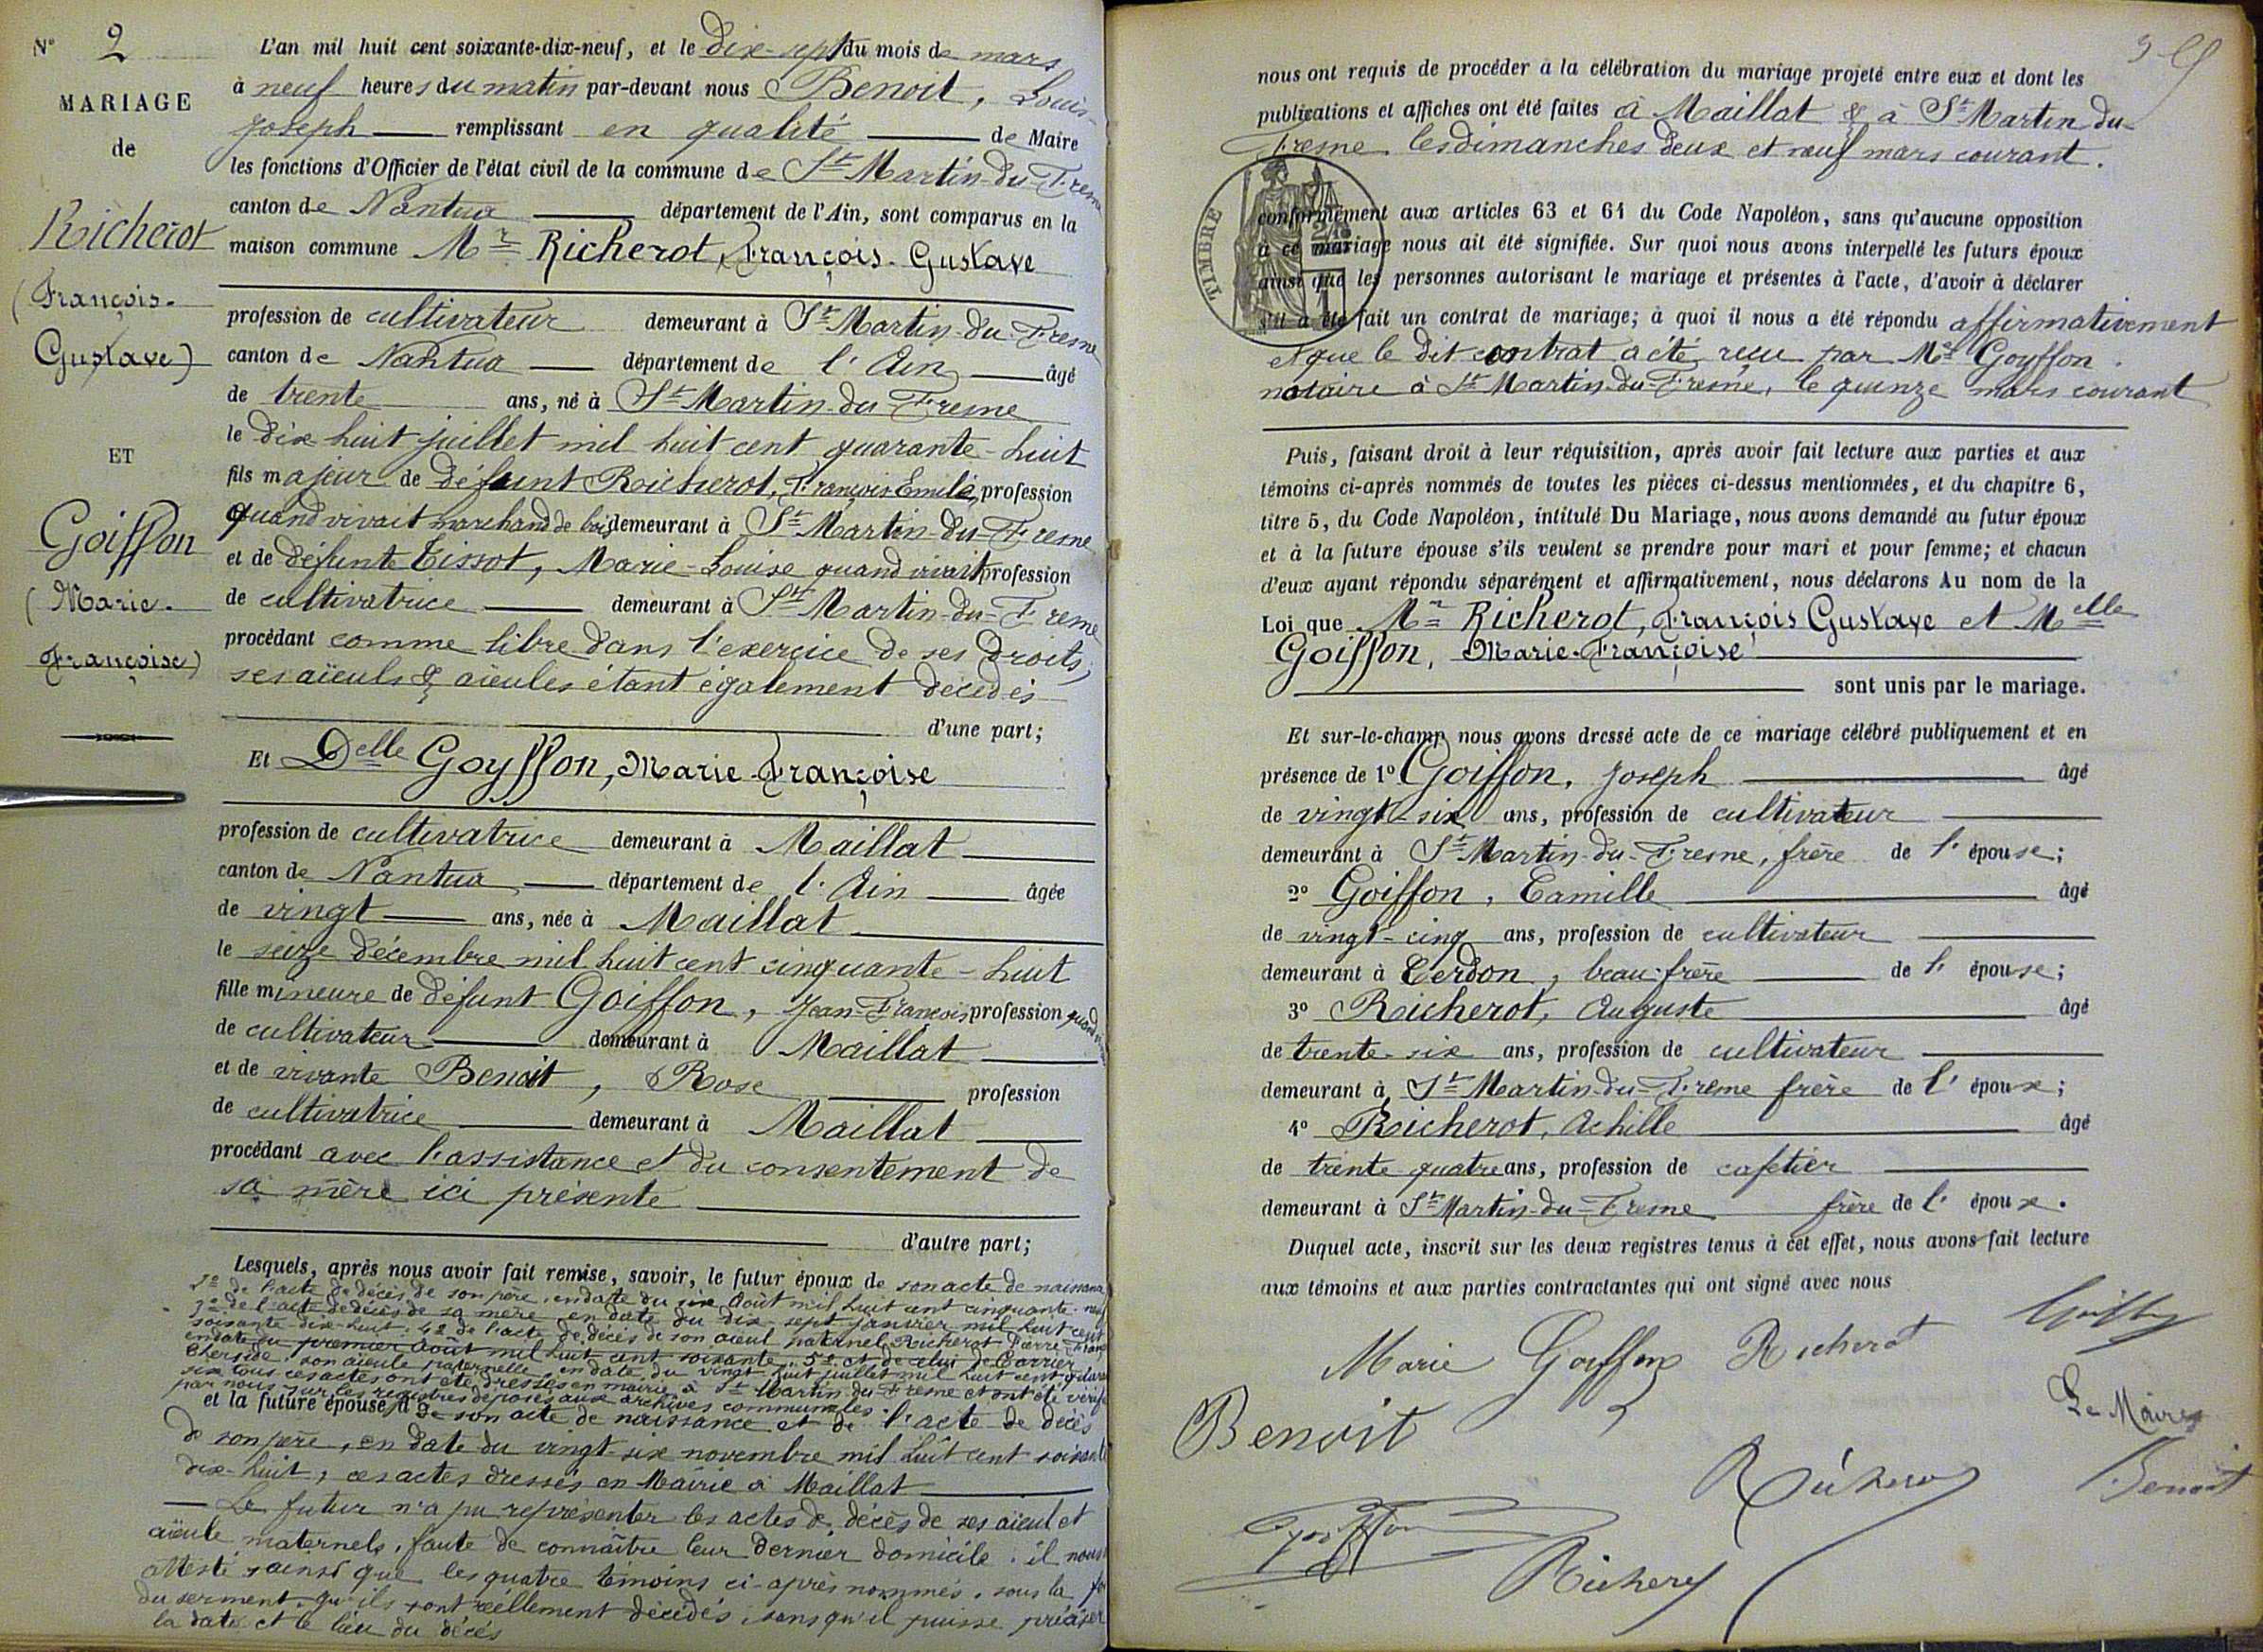 N° 2
MARIAGE
de
Richerot
(François-
Gustave)
ET
Goiffon
(Marie-
Françoise)
L'an mil huit cent soixante-dix-neuf, et le dix-sept du mois de mars
à neuf heures du matin par-devant nous Benoit, Louis-
Joseph remplissant en qualité de Maire
les fonctions d'Officier de l'état civil de la commune de St Martin-du-Fresne
canton de Nantua département de l'Ain, sont comparus en la
maison commune Mr Richerot, François-Gustave
profession de cultivateur demeurant à St Martin-du Fresne
canton de Nantua département de l'Ain âgé
de trente ans, né à St Martin-du-Fresne
le dix huit juillet mil huit cent quarante-huit
fils majeur de défunt Richerot, François Emile, profession
quand vivait marchand de bois demeurant à St Martin-du-Fresne
et de défunte Tissot, Marie-Louise quand vivait profession
de cultivatrice demeurant à St Martin-du-Fresne
procédant comme libre dans l'exercice de ses droits,
ses aïeuls & aïeules étant également décédés
d'une part;
Et Delle Goyffon, Marie-Françoise
profession de cultivatrice demeurant à Maillat
canton de Nantua département de l'Ain âgée
de vingt ans, née à Maillat
le seize décembre mil huit cent cinquante-huit
fille mineure de défunt Goiffon, Jean-François profession quand
de cultivateur demeurant à Maillat
et de vivante Benoit, Rose profession
de cultivatrice demeurant à Maillat
procédant avec l'assistance et du consentement de
sa mère ici présente
d'autre part;
Lesquels, après nous avoir fait remise, savoir, le futur époux de son acte de naissance
2° de l'acte de décès de son père, en date du six août mil huit cent cinquante-neuf
3° de l'acte de décès de sa mère en date du dix-sept janvier mil huit cent
soixante-dix-huit; 4° de l'acte de décès de son aïeul paternel Richerot Pierre
en date du premier août mil huit cent soixante. 5° et de celui de Carrier
son aïeule paternelle, en date du vingt huit juillet mil huit cent
six tous ces actes ont été dressés en mairie à St Martin-du-Fresne et ont été vérifiés
par nous sur les registres déposés aux archives communales.
et la future épouse, de son acte de naissance et de l'acte de décès
de son père, en date du vingt-six novembre mil huit cent soixante
dix-huit, ces actes dressés en Mairie à Maillat
Le futur n'a pu représenter les actes de décès de ses aïeul et
aïeule maternels, faute de connaître leur dernier domicile. il nous
attesté ainsi que les quatre témoins ci-après nommés, sous la foi
du serment, qu'ils sont réellement décédés, sans qu'il puisse préciser
la date et le lieu du décès
nous ont requis de procéder à la célébration du mariage projeté entre eux et dont les
publications et affiches ont été faites à Maillat & à St Martin-du-
Fresne les dimanches deux et neuf mars courant.
TIMBRE
conformément aux articles 63 et 64 du Code Napoléon, sans qu'aucune opposition
à ce mariage nous ait été signifiée. Sur quoi nous avons interpellé les futurs époux
ainsi que les personnes autorisant le mariage et présentes à l'acte, d'avoir à déclarer
s'il a été fait un contrat de mariage; à quoi il nous a été répondu affirmativement
et que le dit contrat a été reçu par Me Goyffon
notaire à St Martin-du-Fresne, le quinze mars courant
Puis, faisant droit à leur réquisition, après avoir fait lecture aux parties et aux
témoins ci-après nommés de toutes les pièces ci-dessus mentionnées, et du chapitre 6,
titre 5, du Code Napoléon, intitulé Du Mariage, nous avons demandé au futur époux
et à la future épouse s'ils veulent se prendre pour mari et pour femme; et chacun
d'eux ayant répondu séparément et affirmativement, nous déclarons Au nom de la
Loi que Mr Richerot, François Gustave et Melle
Goiffon, Marie-Françoise
sont unis par le mariage.
Et sur-le-champ nous avons dressé acte de ce mariage célébré publiquement et en
présence de 1° Goiffon, Joseph âgé
de vingt-six ans, profession de cultivateur
demeurant à St Martin-du-Fresne, frère de l'épouse;
2° Goiffon, Camille âgé
de vingt-cinq ans, profession de cultivateur
demeurant à Cerdon, beau-frère de l'épouse;
3° Richerot, Auguste âgé
de trente-six ans, profession de cultivateur
demeurant à St Martin-du-Fresne frère de l'époux;
4° Richerot, Achille âgé
de trente quatre ans, profession de cafetier
demeurant à St Martin-du-Fresne frère de l'époux.
Duquel acte, inscrit sur les deux registres tenus à cet effet, nous avons fait lecture
aux témoins et aux parties contractantes qui ont signé avec nous
Marie Goiffon Richerot
Benoit
Le Maire
Benoit